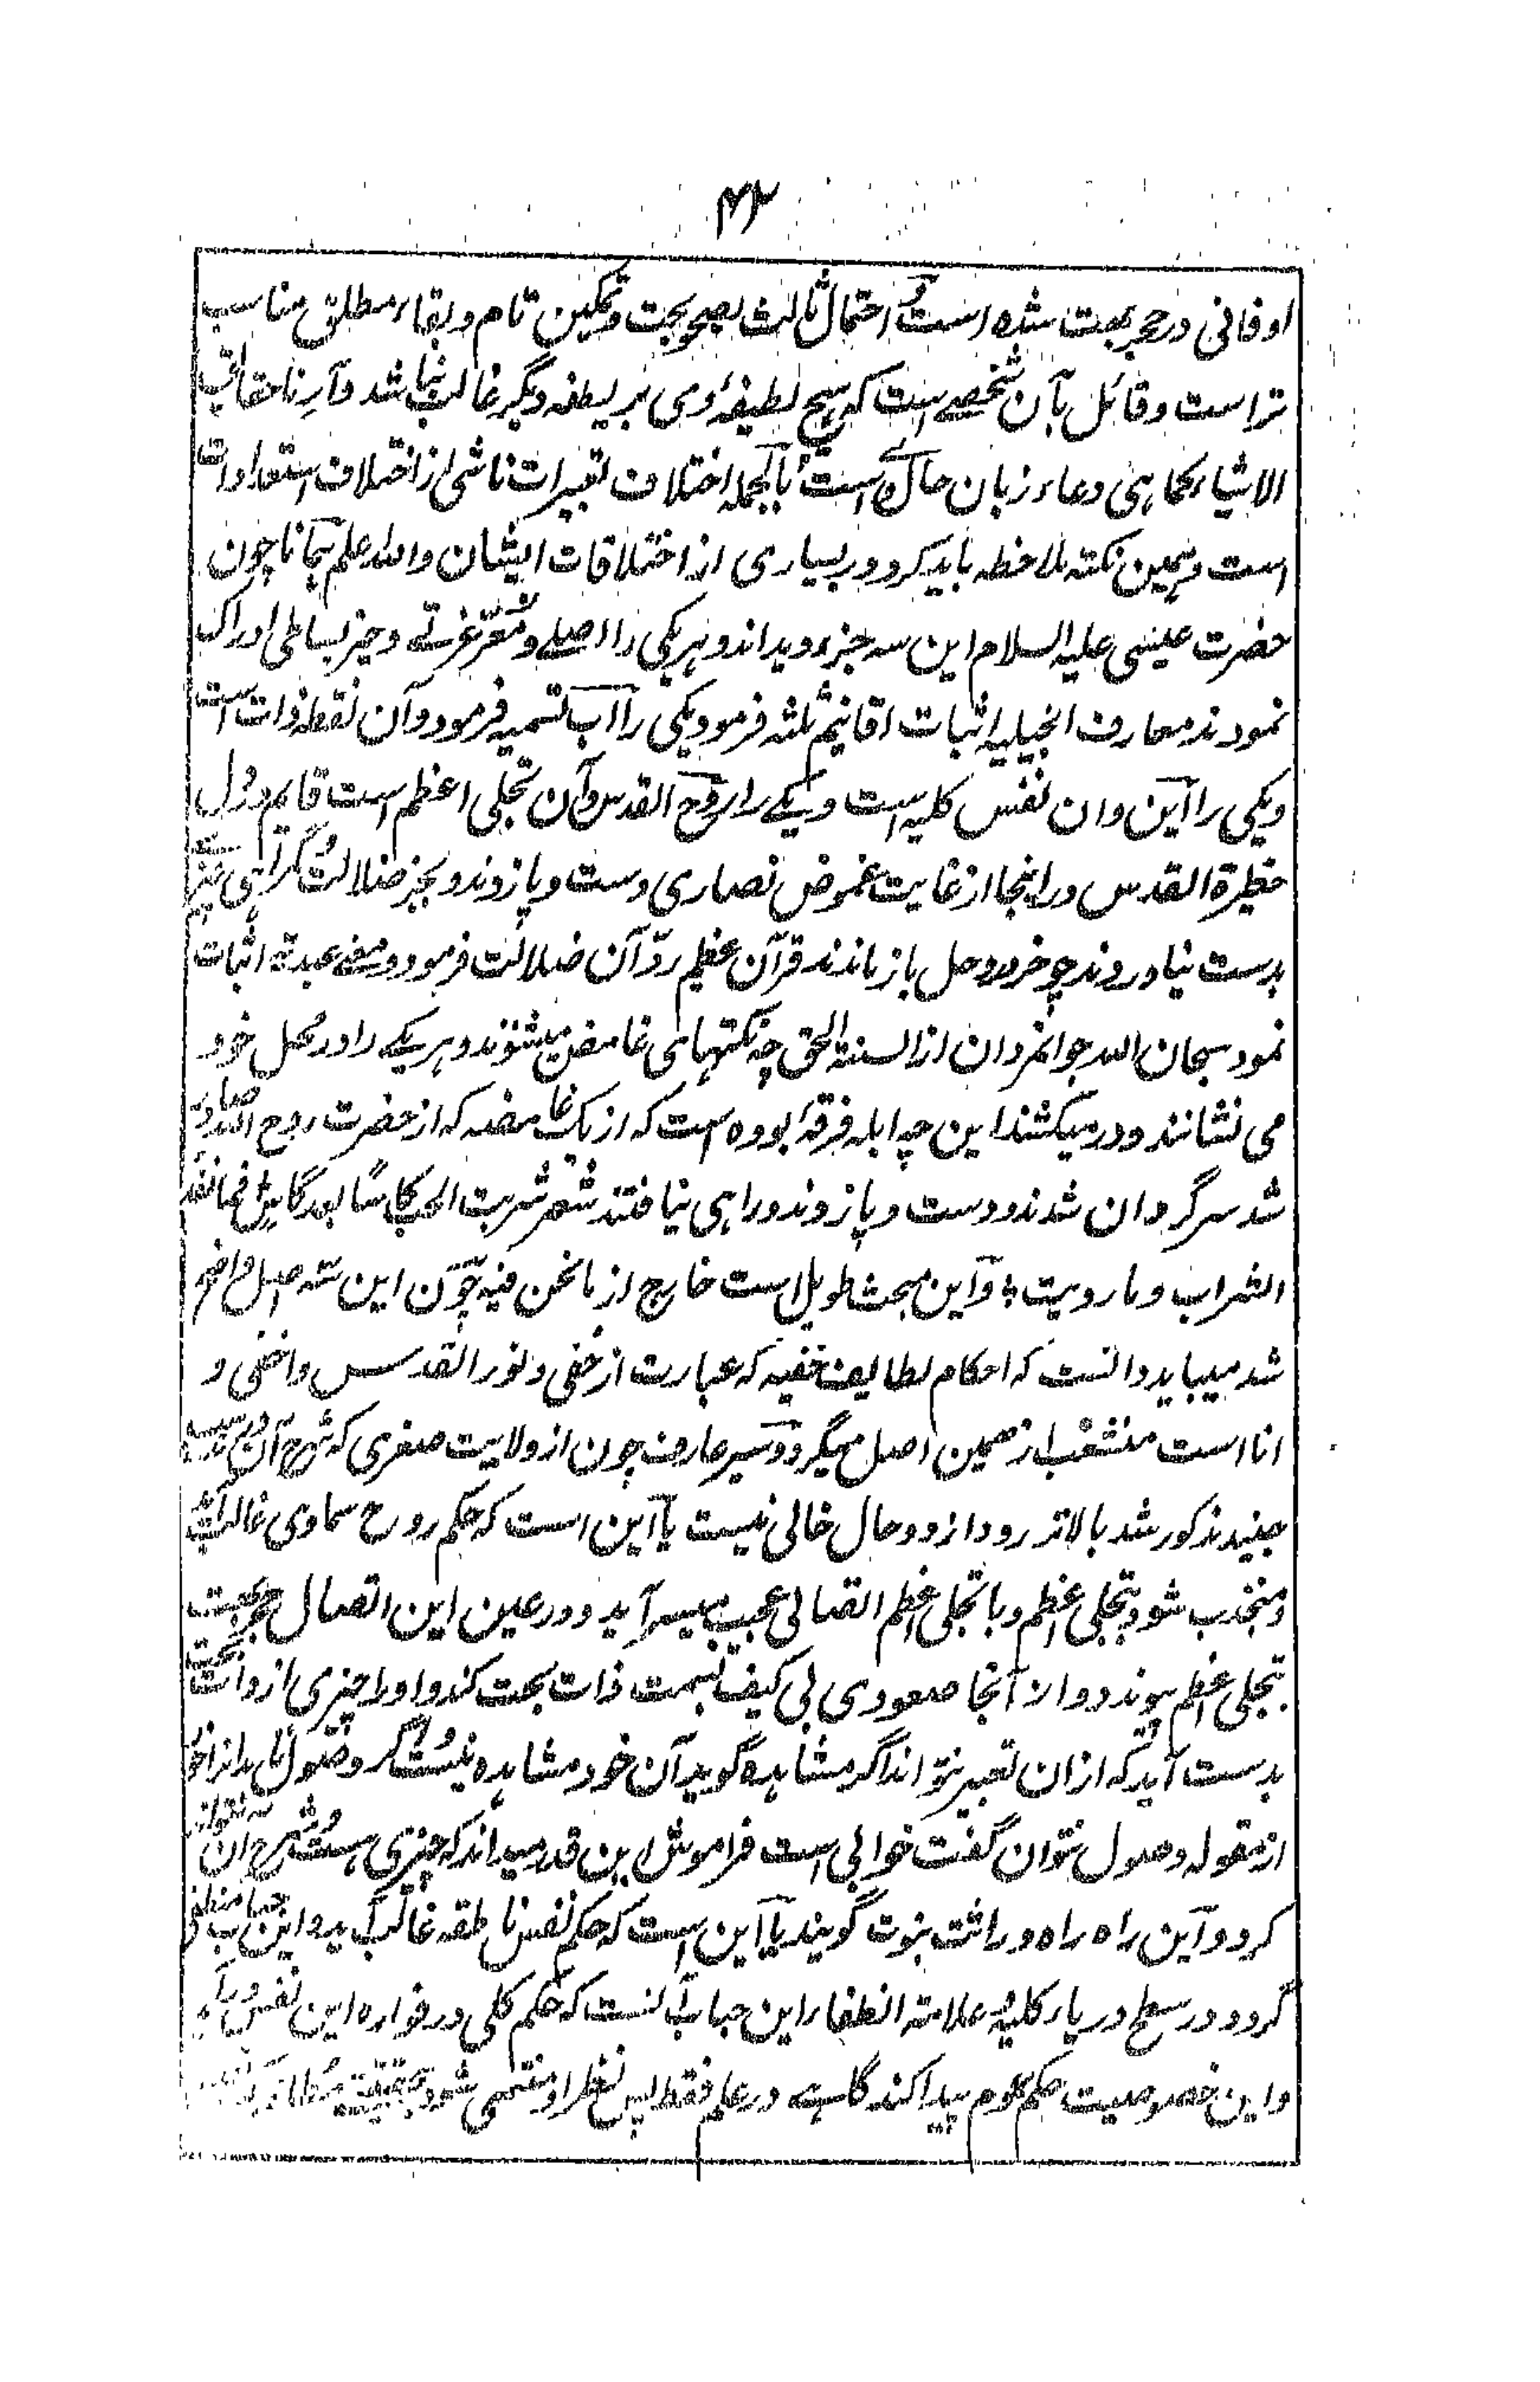 ۴۳
او فانی در حجر بهت شده است و احتمال ثالث بصحو بحت و تمکین تام و بقاء مطلق مناسب
تر است و قائل بآن شخصے است که هیچ لطیفهٔ وی بر لطیفه دیگر غالب نباشد و آرنا حقائق
الاشیاء کماهی دعاء زبان حال وے است بالجمله اختلاف تعبیرات ناشی از اختلاف استعدادات
است و همین نکته ملاحظه باید کرد در بسیاری از اختلافات ایشان والله اعلم همانا چون
حضرت عیسی علیه السلام این سه جزء دیدند و هر یکی را اصلے و مقر عزتے و حیز بساطی ادراک
نمودند معارف انجیلیه اثبات اقانیم ثلثه فرمود یکی را آب تسمیه فرمود و آن نقطه ذات است
و یکی را ابن و ان نفس کلیه است و یکے را روح القدس و آن تجلی اعظم است قایم در دل
حظیرة القدس در اینجا از غایت غموض نصاری دست و پا زدند و بجز ضلالت و گمراهی چیزے
بدست نیاوردند چو خر در وحل باز ماندند قرآن عظیم ردّ آن ضلالت فرمود و معنی عبدیة اثبات
نمود سبحان الله جوانمردان از السنة الحق چه نکتهای غامض میشنوند و هر یکے را در محل خود
می نشانند و در میکشند این چه ابله فرقهٔ بوده است که از یک غامضه که از حضرت روح الله صادر
شد سرگردان شدند و دست و پا زدند و راهی نیافتند شعر شربت الحب کاسًا بعد کاس فما نفد
الشراب وما رویت ؛ و این مبحث طویل است خارج از ما نحن فیه چون این سه اصل واضح
شد میباید دانست که احکام لطایف خفیه که عبارت از خفی و نور القدس و اخفی و
انا است منشعب از همین اصل میگردد سیر عارف چون از ولایت صغری که شرح آن در سیر
جنید مذکور شد بالاتر رود از دو حال خالی نیست یا این است که حکم روح سماوی غالب آید
و منجذب شود بتجلی اعظم و با تجلی اعظم اتصالی عجیب میسر آید و در عین این اتصال حجر بهت
بتجلی اعظم پیوندد و از آنجا صعودی بی کیف بسمت ذات بحت کند و او را چیزی از ذات بحت
بدست آید که از ان تعبیر نتواند اگر مشاهده گوید آن خود مشاهده نیست و اگر وصول نامد از خود
از مقوله وصول نتوان گفت خوابی است فراموش این قدر میداند که چیزی هست و شرح ان نتواند
کرد و آین راه راه وراثت نبوت گویند یا این است که حکم نفس ناطقه غالب آید و این حباب منطفی
گردد در سطح دریاء کلیه و علامة انطفاء این حباب آنست که حکم کلی در فواره این نفس در آید
و این خصوصیت حکم عموم پیدا کند گاہے در علم فقط پس نظر او منتهی شود بحقیقتے